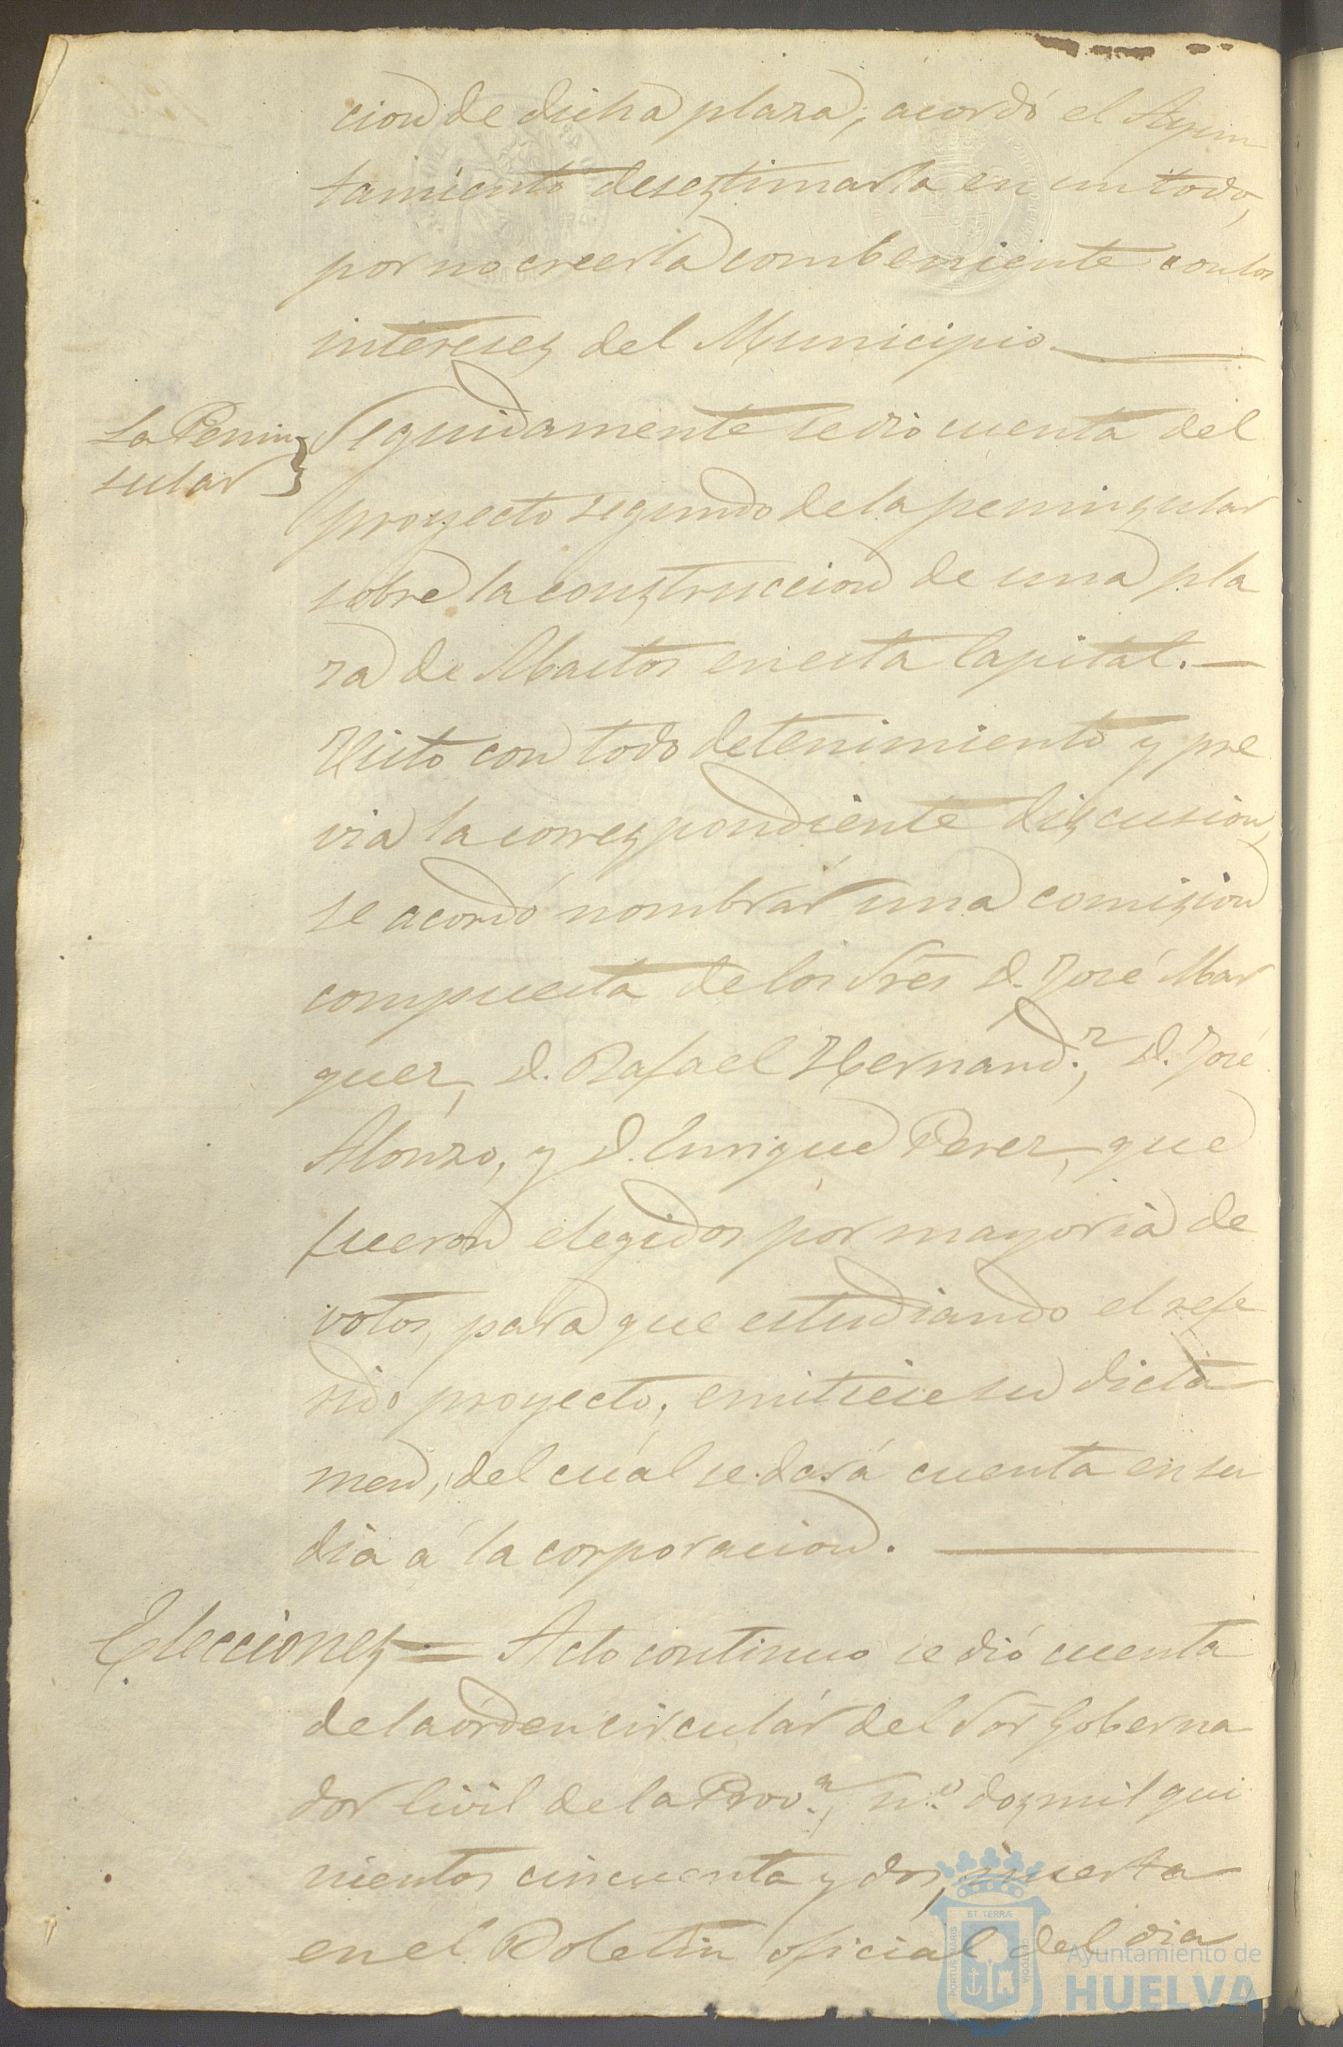 cion de dicha plaza, acordó el Ayun
tamiento desestimarla en un todo,
por no creerla combeniente con los
intereses del Municipio.
La Penin
sular
Seguidamente se dio cuenta del
proyecto segundo de la peninsular
sobre la construccion de una pla
za de Abastos en esta Capital.
Visto con todo detenimiento y pre
via la correspondiente discusion,
se acordó nombrar una comision
compuesta de los Sres D. José Mar
quez, D. Rafael Hernand.z, D. José
Alonzo, y D. Enrique Perez, que
fueron elegidos por mayoria de
votos, para que estudiando el refe
rido proyecto, emitiese su dicta
men, del cuál se dará cuenta en su
dia á la corporacion.
Elecciones = Acto continuo se dió cuenta
de la órden circulár del Sor Goberna
dor Civil de la Prov.a, n.o dos mil qui
nientos cincuenta y dos, inserta
en el Boletin oficial del dia
Ayuntamiento de
HUELVA